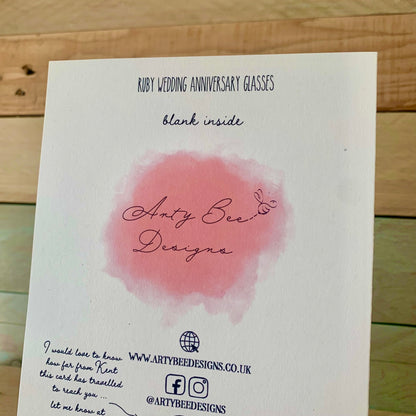 RUBY WEDDING ANNIVERSARY GLASSES
blank inside
Arty Bee
Designs
WWW.ARTYBEEDESIGNS.CO.UK
@ARTYBEEDESIGNS
I would love to know
how far from Kent
this card has travelled
to reach you ...
let me know at